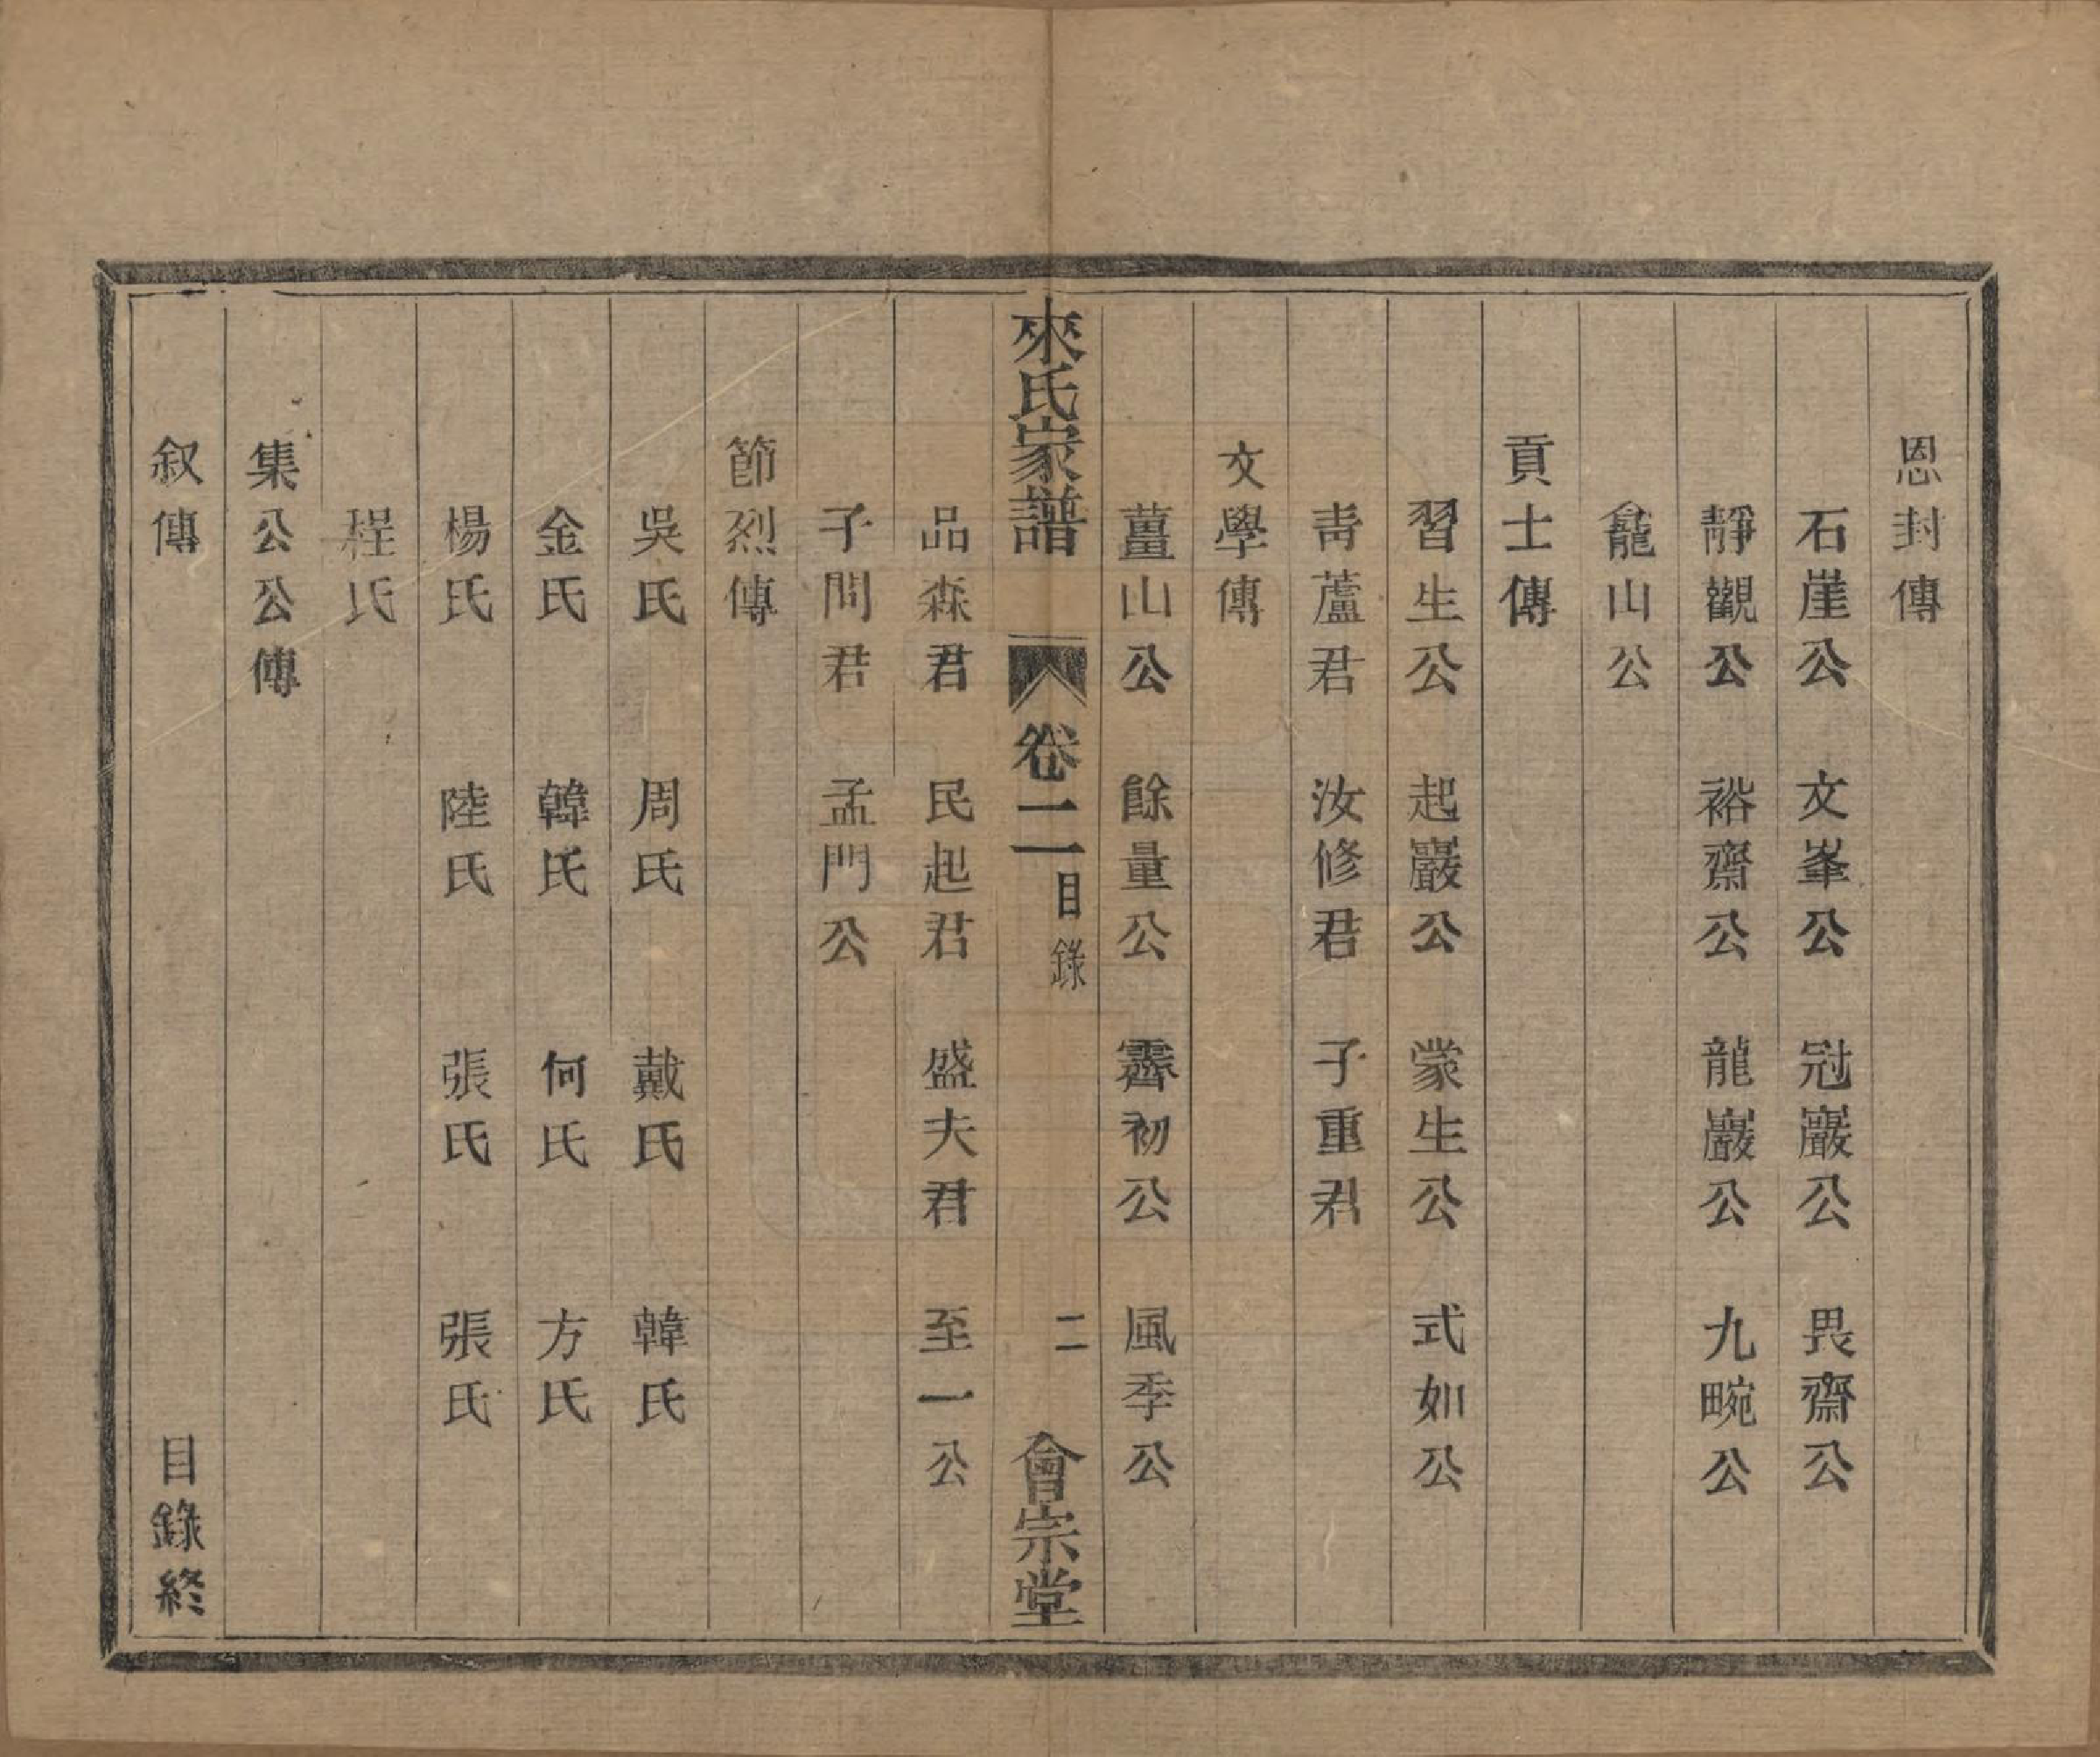 恩封傳
石崖公 文峯公 冠巖公 畏齋公
靜觀公 裕齋公 龍巖公 九畹公
龕山公
貢士傳
習生公 起巖公 蒙生公 式如公
靑蘆君 汝修君 子重君
文學傳
薑山公 餘量公 霽初公 風季公
來氏家譜 卷二 目錄 二 會宗堂
品森君 民起君 盛夫君 至一公
子問君 孟門公
節烈傳
吳氏 周氏 戴氏 韓氏
金氏 韓氏 何氏 方氏
楊氏 陸氏 張氏 張氏
程氏
集公公傳
叙傳 目錄終